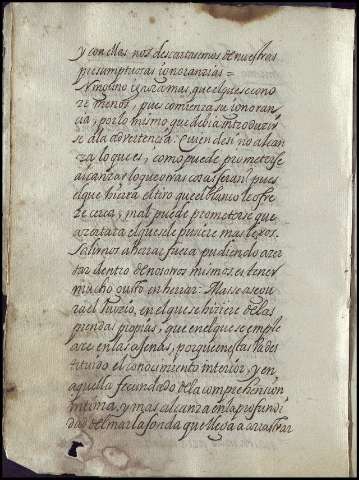 y con ellas nos descartaremos de nuestras
presumptuosas ignorancias =
Ninguno ignora mas, que el que se cono
ze menos, pues comienza su ignoran
cia, por lo mismo que debia introduzir
se a la advertenzia: quien de si no alcan
za lo que es, como puede prometerse
alcanzar lo que otras cosas seran? pues
el que hierra el tiro que el blanco le ofre
ze cerca, mal puede prometerse que
azertara el que se le pusiere mas lexos.
Salirnos a herrar fuera pudiendo azer
tar dentro de nosotros mismos, es tener
mucho gusto en herrar: Mas se asegu
ra el Juizio, en el que se hiziere de las
prendas propias, que en el que se emple
are en las ajenas, porque en estas va des
tituido el conocimiento interior, y en
aquella fecundado de la comprehension
intima, y mas alcanza en la profundi
dad del mar la sonda que lleva a arrastrar